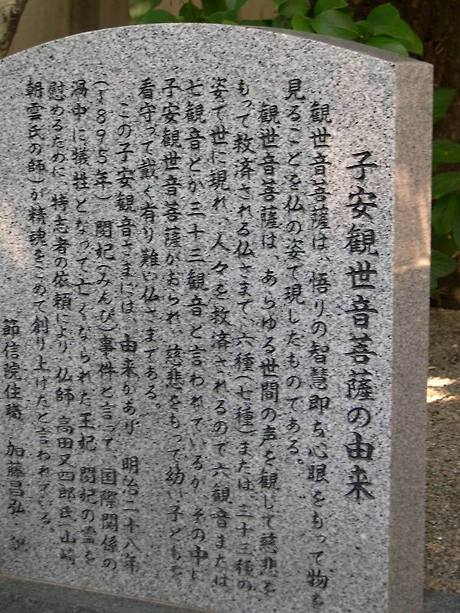 子安観世音菩薩の由来
観世音菩薩は、悟りの智慧即ち心眼をもって物を
見ることを仏の姿で現したものである。
観世音菩薩は、あらゆる世間の声を観して慈悲を
もって救済される仏さまで、六種(七種)または三十三種の
姿で世に現れ、人々を救済されるので六観音または
七観音とか三十三観音と言われているが、その中に
子安観世音菩薩がおられ、慈悲をもって幼い子どもを
看守って戴く有り難い仏さまである。
この子安観音さまには、由来があり、明治二十八年
(1895年) 閔妃(みんび)事件と言って、国際関係の
渦中に犠牲となって亡くなられた王妃 閔妃の霊を
慰めるために、特志者の依頼により、仏師 高田又四郎氏(山崎
朝雲氏の師)が精魂をこめて創り上げたと言われている。
節信院住職 加藤昌弘